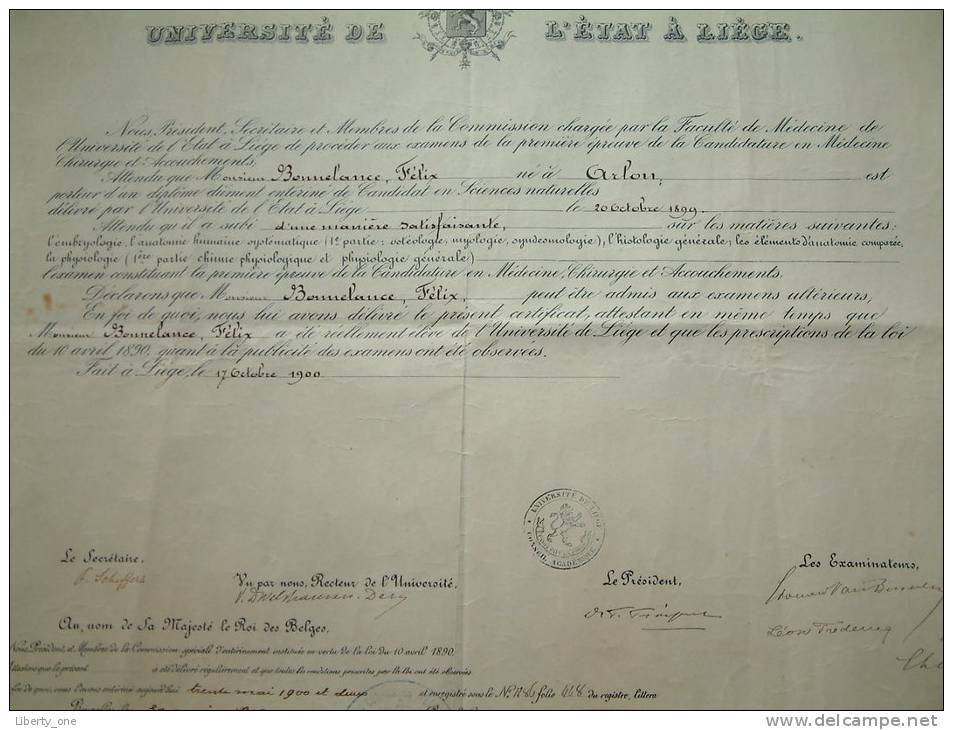 UNIVERSITÉ DE L'ÉTAT À LIÈGE.
Nous, Président, Secrétaire et Membres de la Commission chargée par la Faculté de Médecine de
l'Université de l'Etat à Liège de procéder aux examens de la première épreuve de la Candidature en Médecine
Chirurgie et Accouchements.
Attendu que Monsieur Bonnelance, Félix né à Arlon, est
porteur d'un diplôme dûment entériné de Candidat en Sciences naturelles
délivré par l'Université de l'Etat à Liège le 20 Octobre 1899.
Attendu qu'il a subi d'une manière satisfaisante, sur les matières suivantes:
l'embryologie, l'anatomie humaine systématique (1e partie: ostéologie, myologie, syndesmologie), l'histologie générale; les éléments d'anatomie comparée,
la physiologie (1ère partie chimie physiologique et physiologie générale)
l'examen constituant la première épreuve de la Candidature en Médecine, Chirurgie et Accouchements.
Déclarons que Monsieur Bonnelance, Félix, peut être admis aux examens ultérieurs,
En foi de quoi, nous lui avons délivré le présent certificat, attestant en même temps que
Monsieur Bonnelance, Félix a été réellement élève de l'Université de Liège et que les prescriptions de la loi
du 10 avril 1890, quant à la publicité des examens ont été observées.
Fait à Liège, le 17 Octobre 1900.
UNIVERSITÉ DE LIÈGE
CONSEIL ACADÉMIQUE
Le Secrétaire,
Vu par nous, Recteur de l'Université.
Le Président,
Les Examinateurs,
Léon Fredericq
Au nom de Sa Majesté le Roi des Belges.
Nous, Président, et Membres de la Commission spéciale d'entérinement instituée en vertu de la loi du 10 avril 1890,
a été délivré régulièrement et que toutes les conditions prescrites par la loi ont été observées
foi de quoi, nous l'avons entériné aujourd'hui trente mai 1900 et deux et enregistré sous le N° folio 448 du registre, littera
Liberty_one
www.delcampe.net